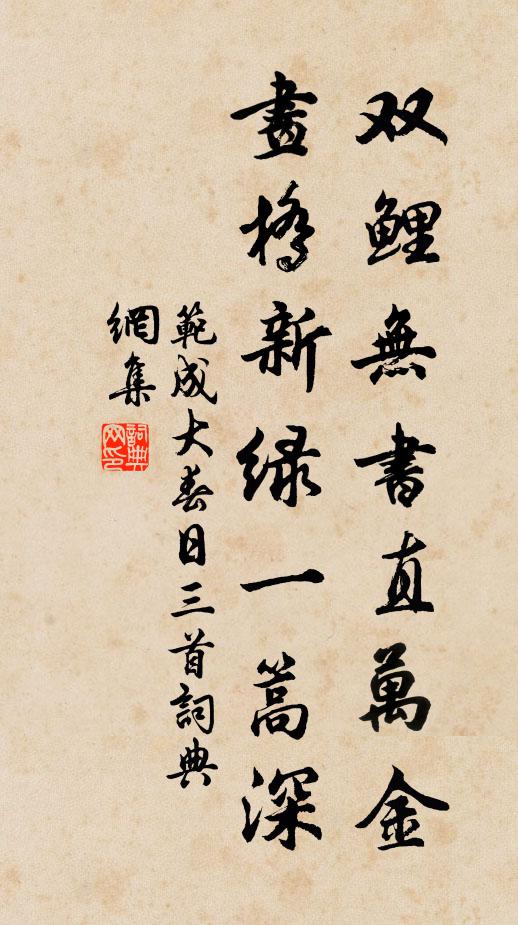 双鲤無書直萬金
畫橋新緑一篙深
範成大春日三首詞典
網集
詞典網印